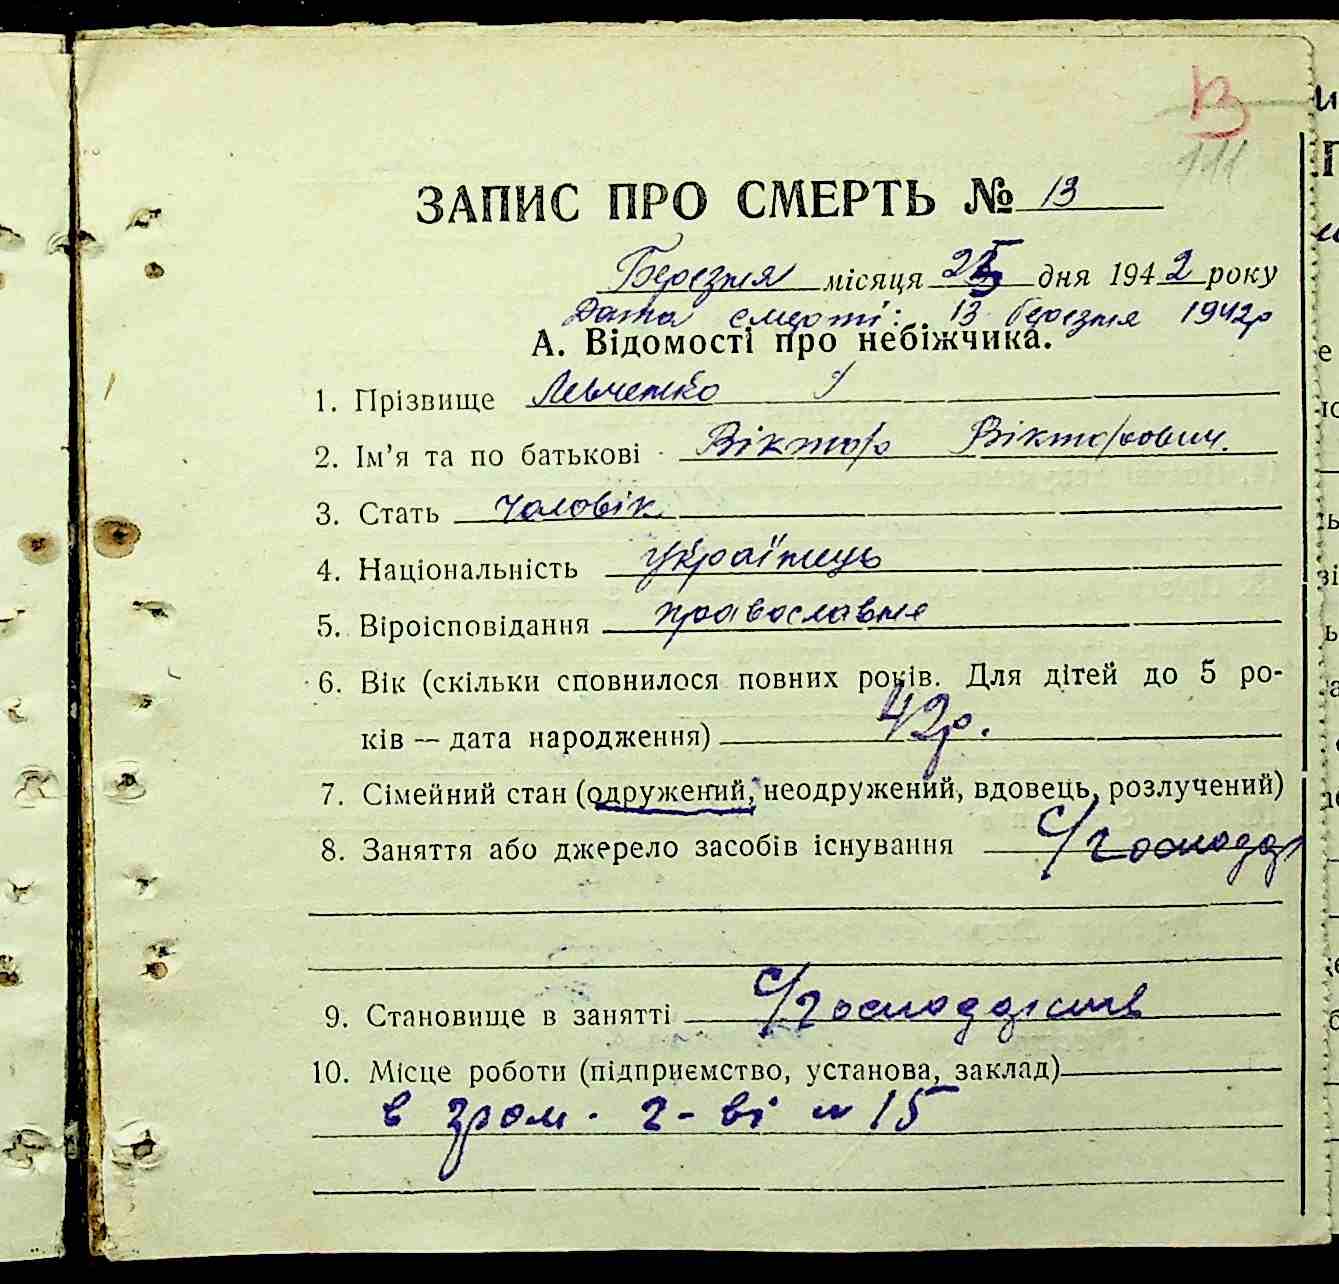 13
111
ЗАПИС ПРО СМЕРТЬ № 13
Березня місяця 25 дня 1942 року
Дата смерті: 13 березня 1942р
А. Відомості про небіжчика.
1. Прізвище Левченко
2. Ім'я та по батькові Віктор Вікторович.
3. Стать чоловік
4. Національність українець
5. Віроісповідання православне
6. Вік (скільки сповнилося повних років. Для дітей до 5 ро-
ків — дата народження) 42р.
7. Сімейний стан (одружений, неодружений, вдовець, розлучений)
8. Заняття або джерело засобів існування с/господар
9. Становище в занятті
10. Місце роботи (підприємство, установа, заклад)
в гром. г-ві № 15